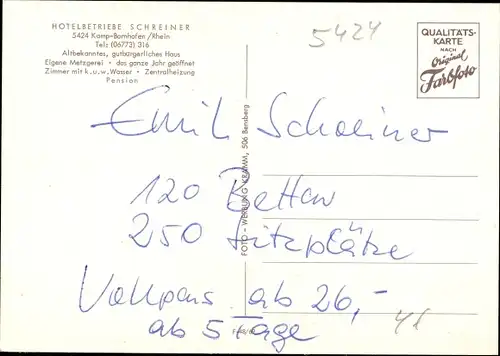 HOTELBETRIEBE SCHREINER
5424 Kamp-Bornhofen/Rhein
Tel: (06773) 316
Altbekanntes, gutbürgerliches Haus
Eigene Metzgerei • das ganze Jahr geöffnet
Zimmer mit k. u. w. Wasser • Zentralheizung
Pension
5424
QUALITÄTS-
KARTE
NACH
Original
Farbfoto
Emil Schreiner
120 Betten
250 Sitzplätze
Vollpens ab 26,-
ab 5 Tage
FOTO - WERBUNG KRAMM, 506 Bensberg